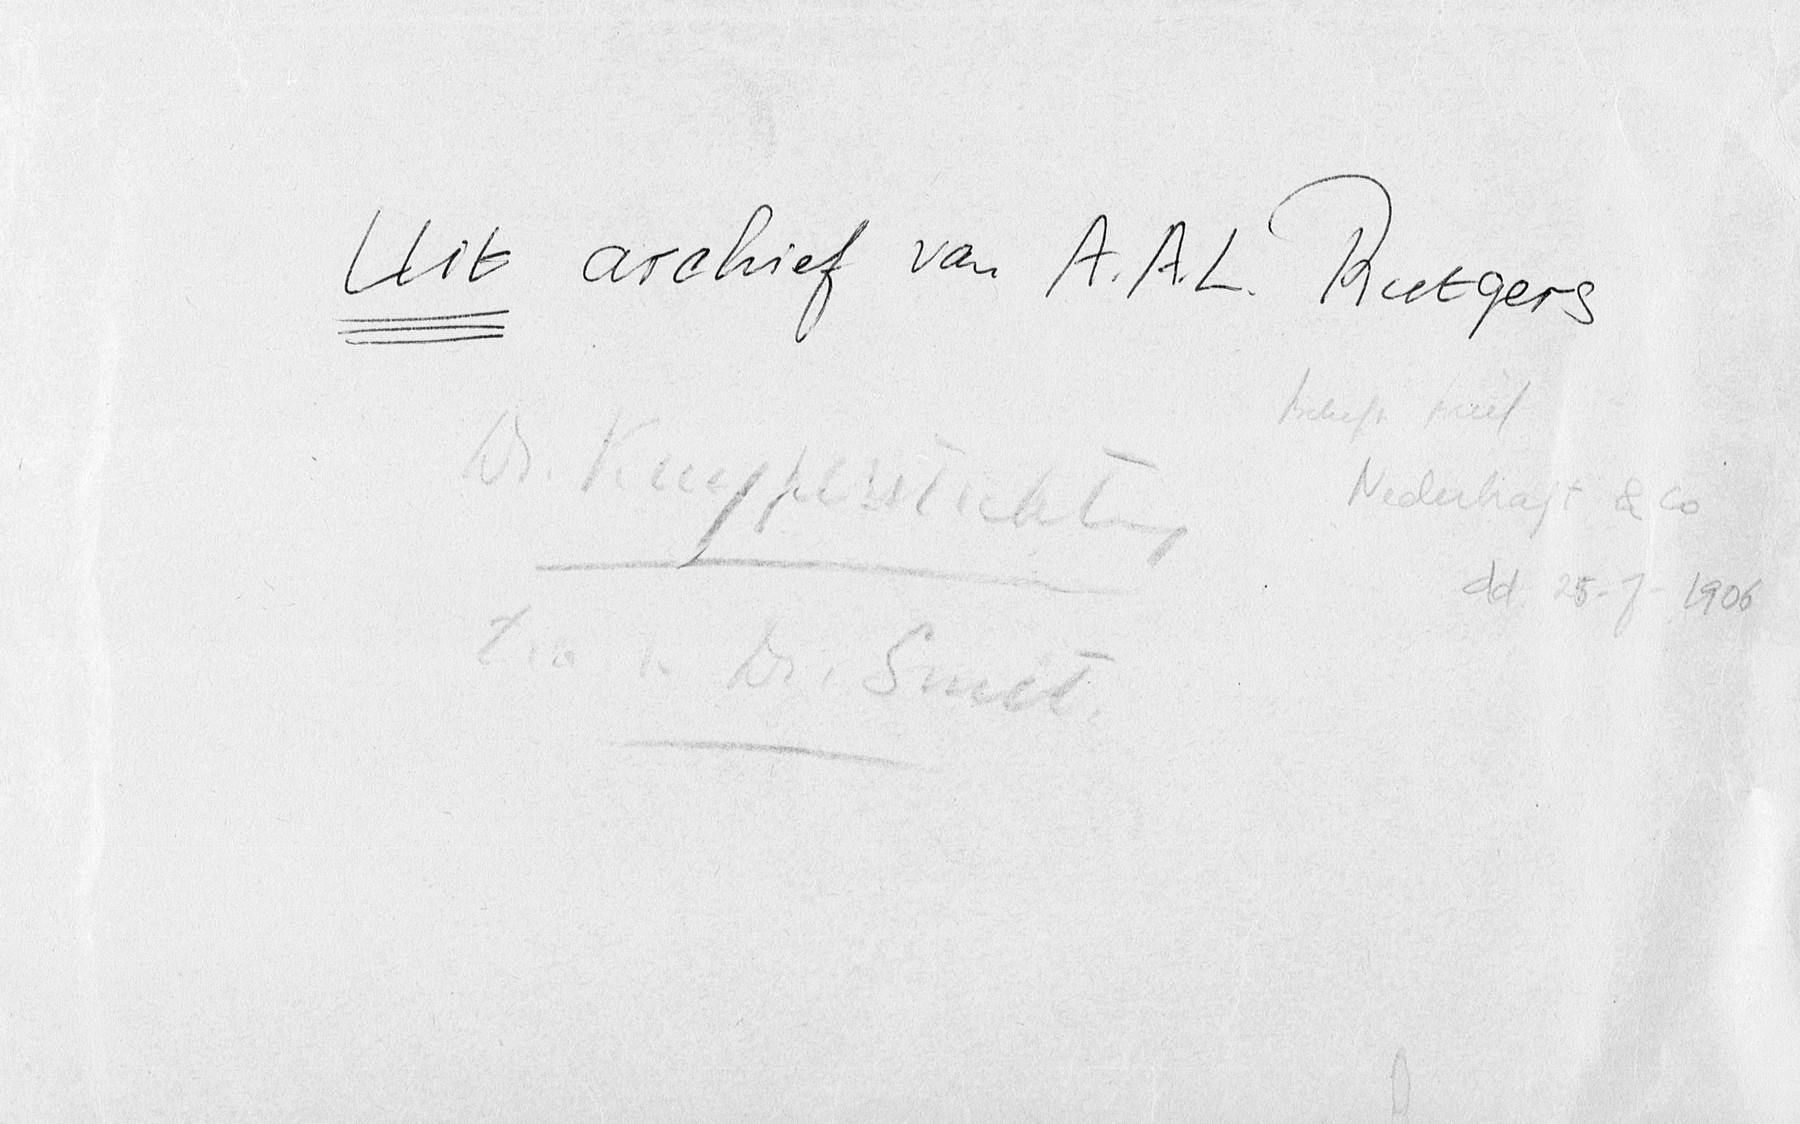 Uit archief van A.A.L. Rutgers
Dr. Kuyperstichting
Nederhorst & Co
dd 25-7-1906
Dr. Smit.